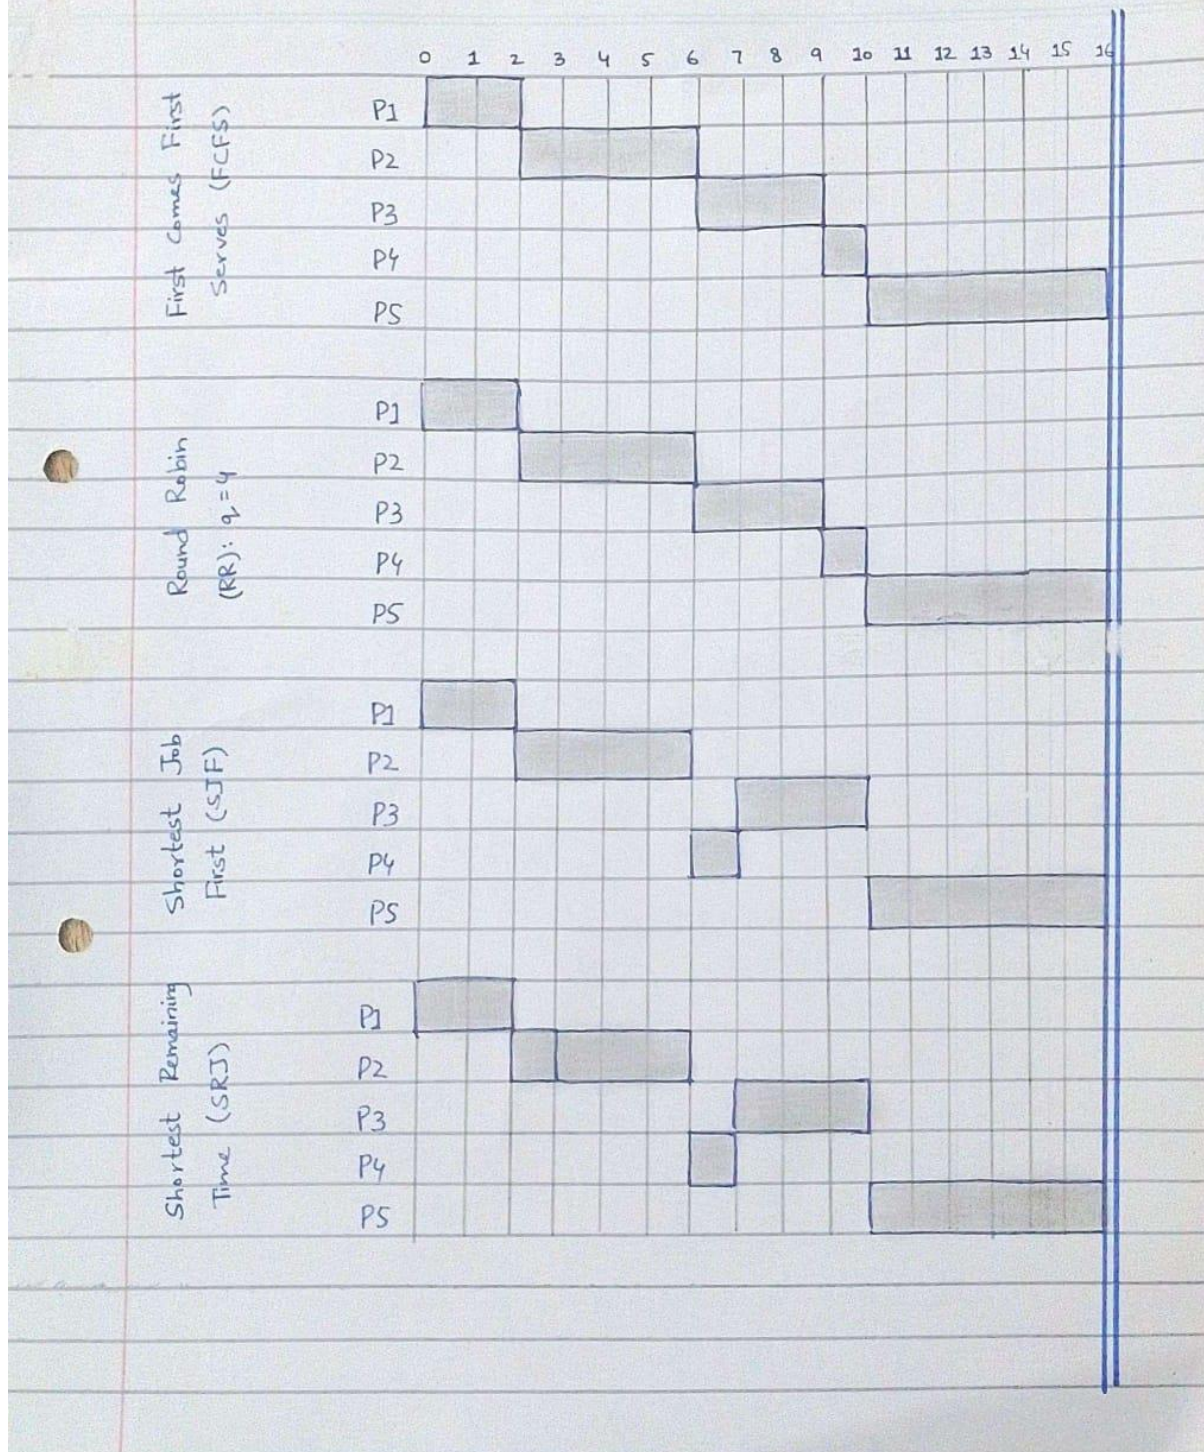 0 1 2 3 4 5 6 7 8 9 10 11 12 13 14 15 16
First Comes First
Serves (FCFS)
P1
P2
P3
P4
P5
Round Robin
(RR): q=4
P1
P2
P3
P4
P5
Shortest Job
First (SJF)
P1
P2
P3
P4
P5
Shortest Remaining
Time (SRJ)
P1
P2
P3
P4
P5